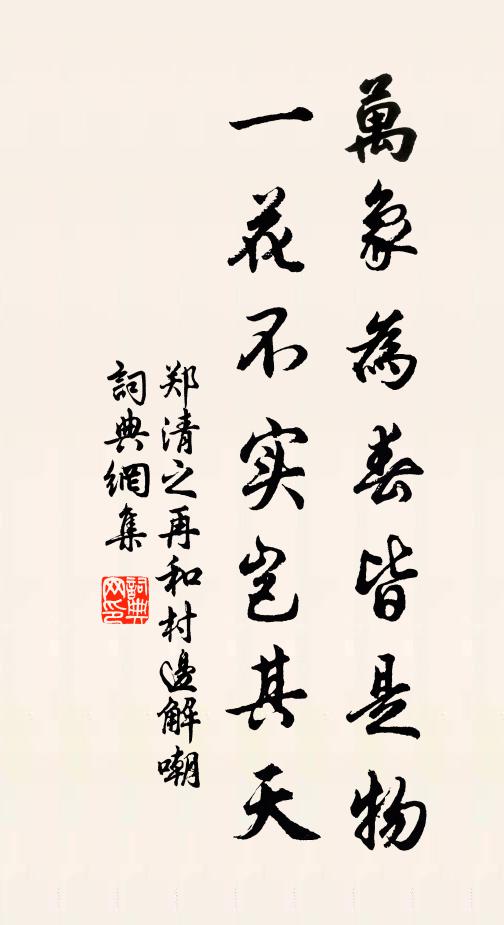 萬象為春皆是物
一花不实岂其天
郑清之再和村邊解嘲
詞典網集
詞典网印